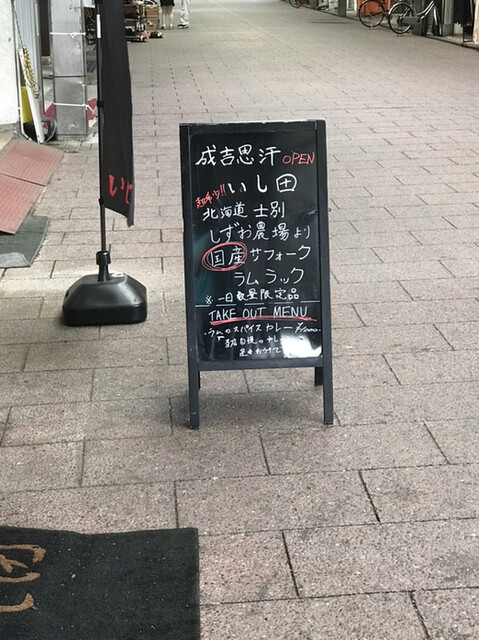 成吉思汗 OPEN
いし田
北海道 士別
しずお農場より
国産 サフォーク
ラム ラック
※ 一日数量限定品
TAKE OUT MENU
・ラムのスパイスカレー
いし